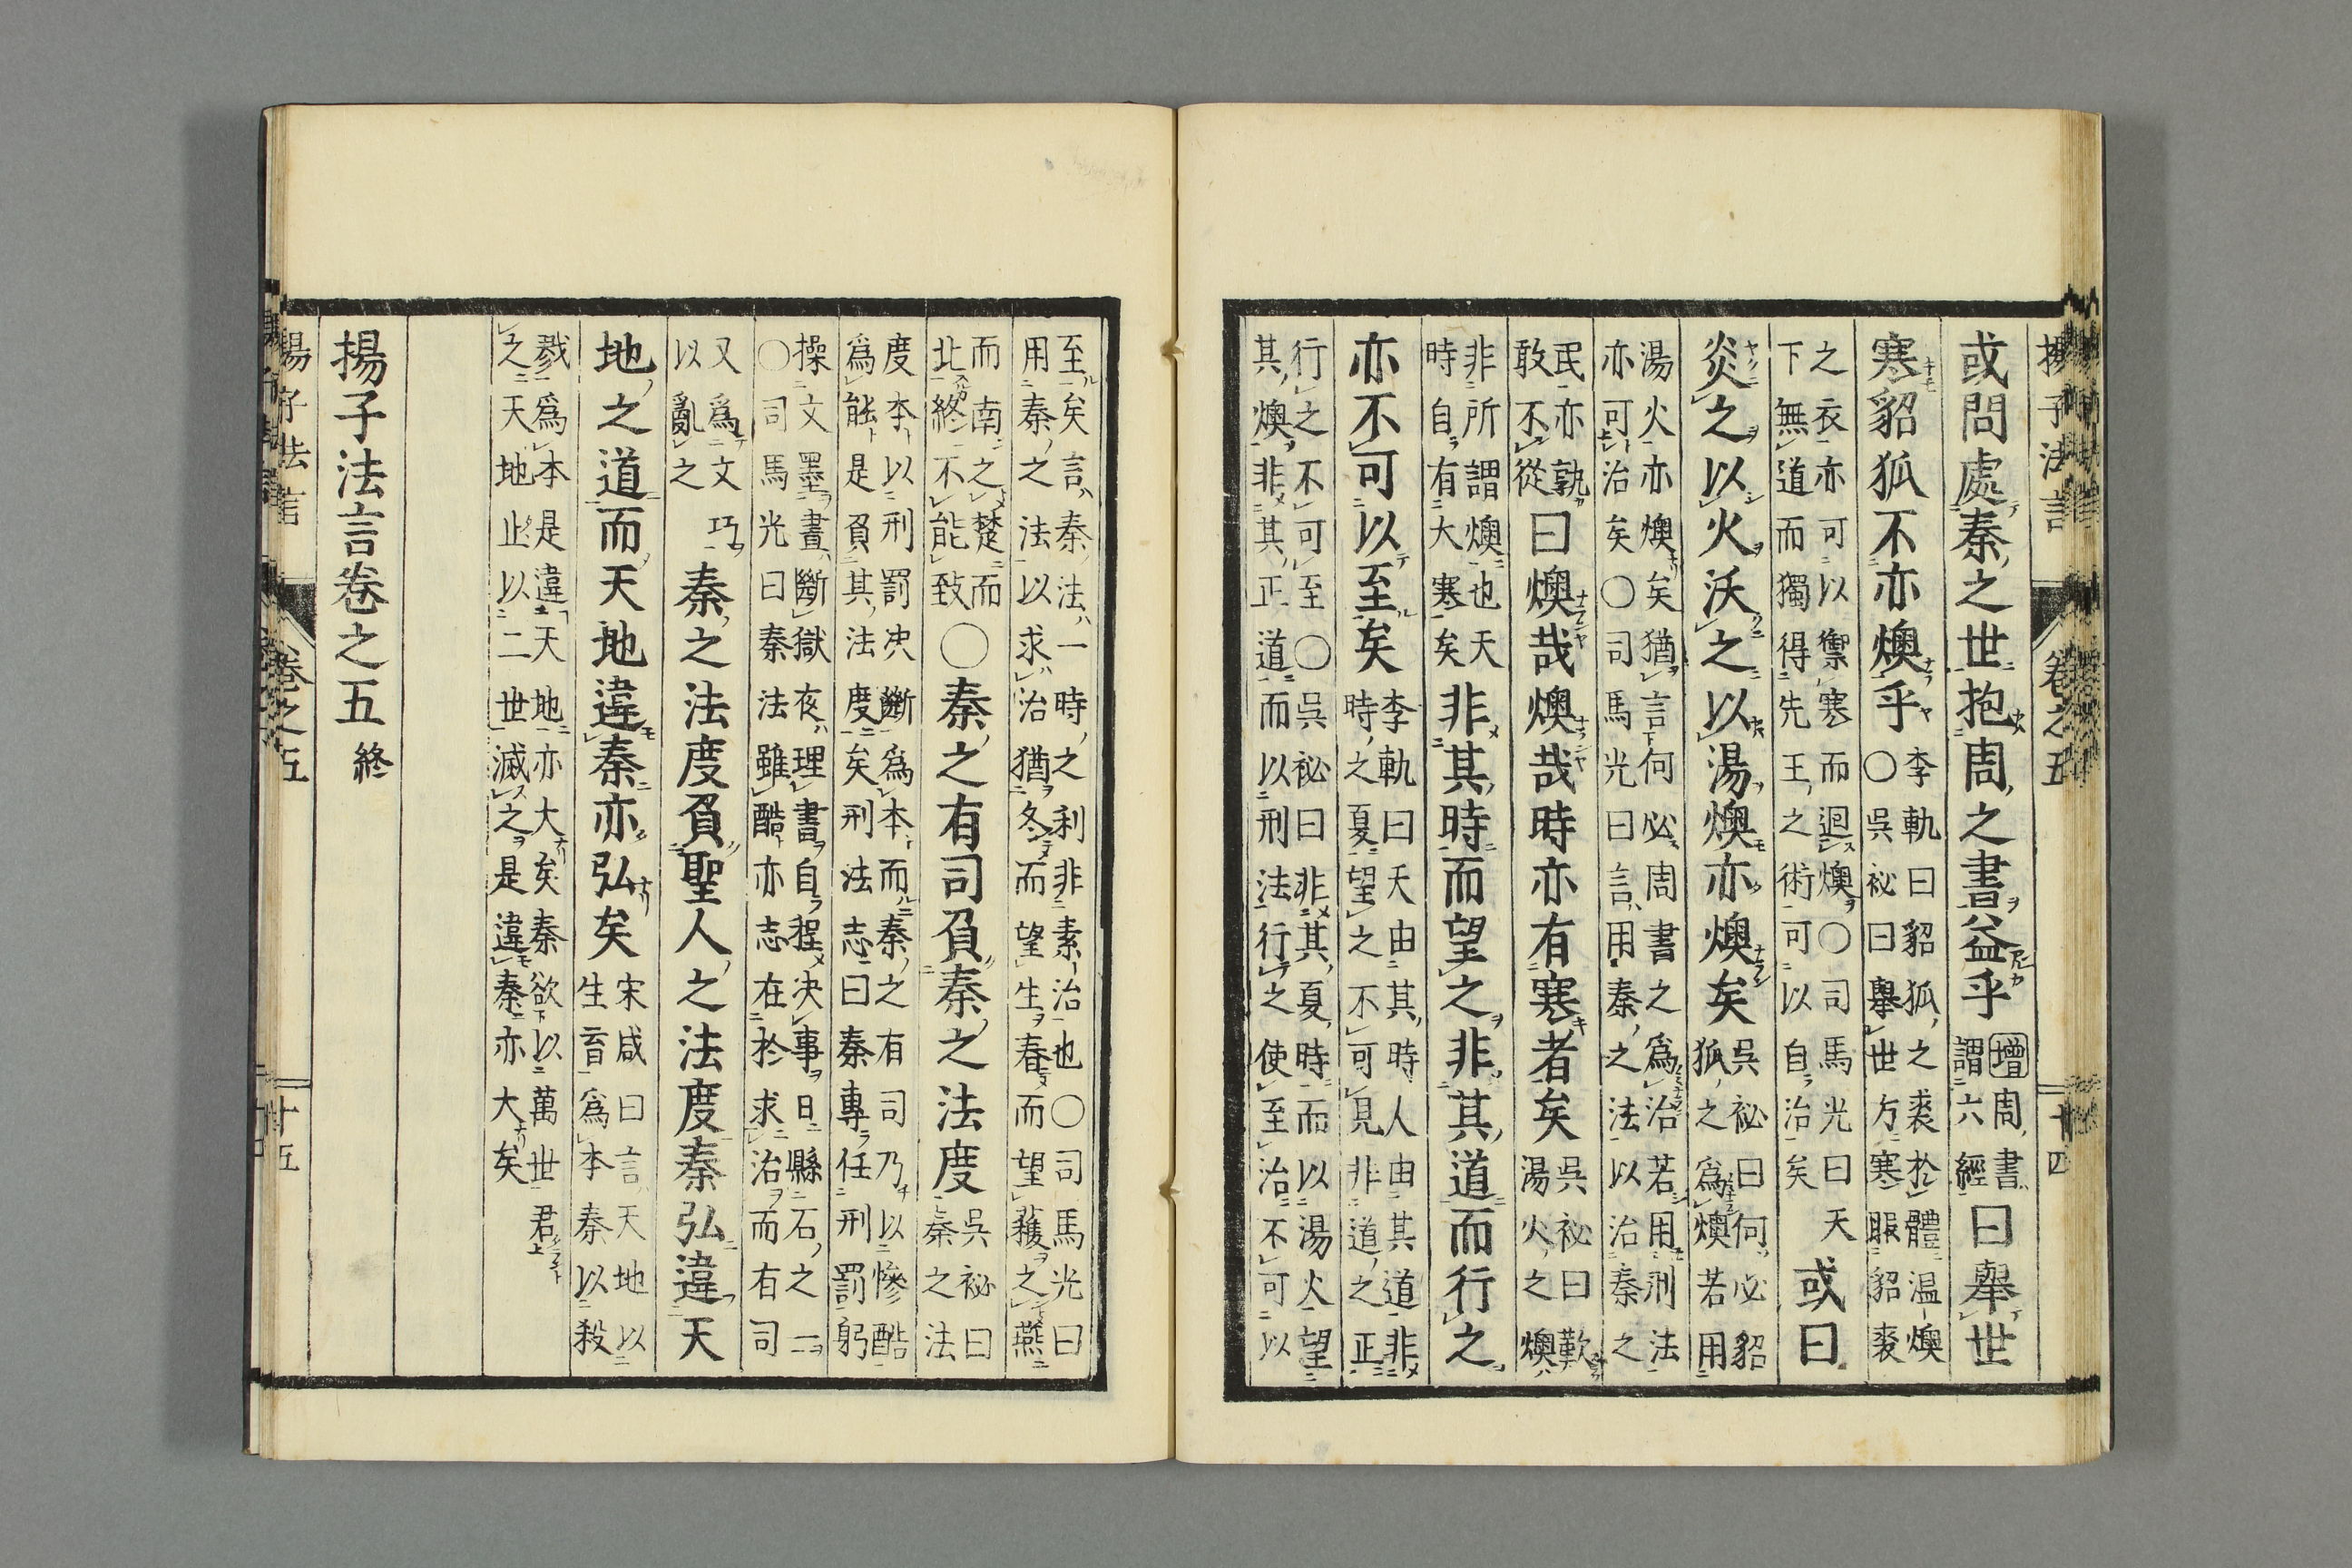 揚子法言　卷之五　十四
或問處秦之世抱周之書益乎
增周書
謂六經
曰舉世
寒貂狐不亦燠乎
李軌曰貂狐之裘於體温燠
○吳祕曰舉世方寒服貂裘
之衣亦可以禦寒而迴燠○司馬光曰天
下無道而獨得先王之術可以自治矣
或曰
炎之以火沃之以湯燠亦燠矣
吳祕曰何必貂
狐之爲燠若用
湯火亦燠矣猶言何必周書之爲治若用刑法
亦可治矣○司馬光曰言用秦之法以治秦之
民亦孰
敢不從
曰燠哉燠哉時亦有寒者矣
吳祕曰歎
湯火之燠
非所謂燠也天
時自有大寒矣
非其時而望之非其道而行之
亦不可以至矣
李軌曰天由其時人由其道非
時之夏望之不可見非道之正
行之不可至○吳祕曰非其夏時而以湯火望
其燠非其正道而以刑法行之使至治不可以
至矣言秦法一時之利非素治也○司馬光曰
用秦之法以求治猶冬而望生春而望穫之燕
而南之楚而
北終不能致
○秦之有司負秦之法度
吳祕曰
秦之法
度本以刑罰決斷爲本而秦之有司乃以慘酷
爲能是負其法度矣刑法志曰秦專任刑罰躬
操文墨晝斷獄夜理書自程決事日縣石之一
○司馬光曰秦法雖酷亦志在於求治而有司
又爲文巧
以亂之
秦之法度負聖人之法度秦弘違天
地之道而天地違秦亦弘矣
宋咸曰言天地以
生育爲本秦以殺
戮爲本是違天地亦大矣秦欲以萬世君
之天地止以二世滅之是違秦亦大矣
揚子法言卷之五終
揚子法言　卷之五　十五